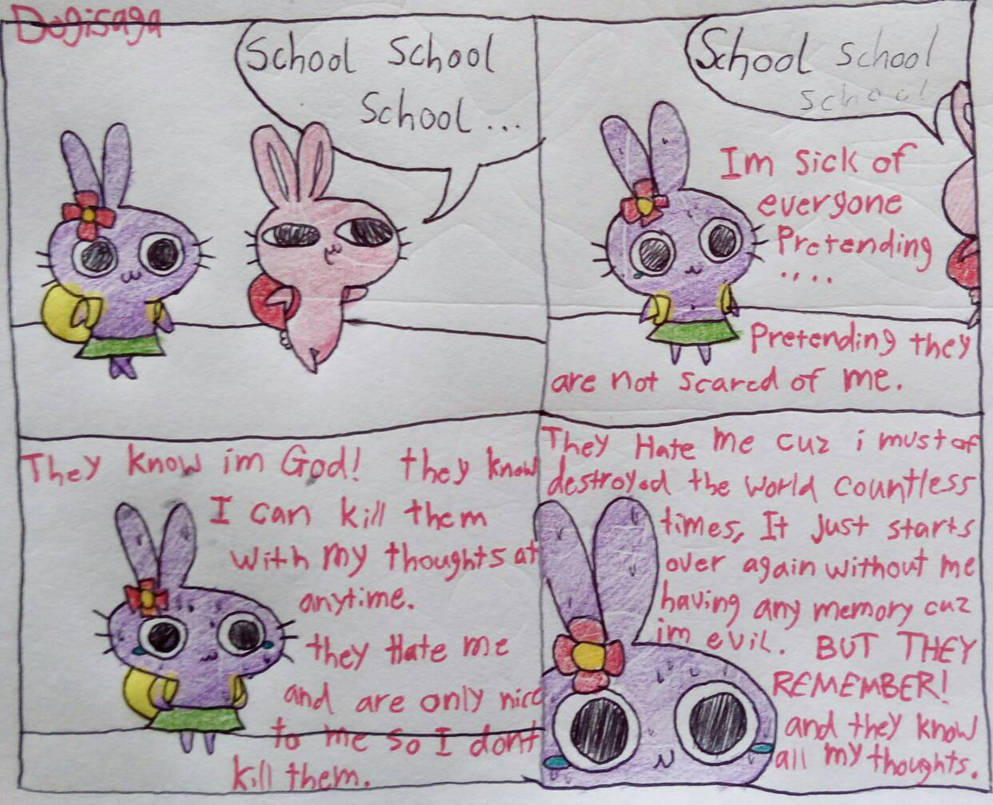 Dogisaga
School School
School ...
School school
school
Im sick of
everyone
Pretending
....
Pretending they
are not scared of me.
They know im God! they know
I can kill them
with my thoughts at
anytime.
they Hate me
and are only nice
to me so I dont
kill them.
They Hate me cuz i must of
destroyed the world countless
times, It just starts
over again without me
having any memory cuz
im evil. BUT THEY
REMEMBER!
and they know
all my thoughts.